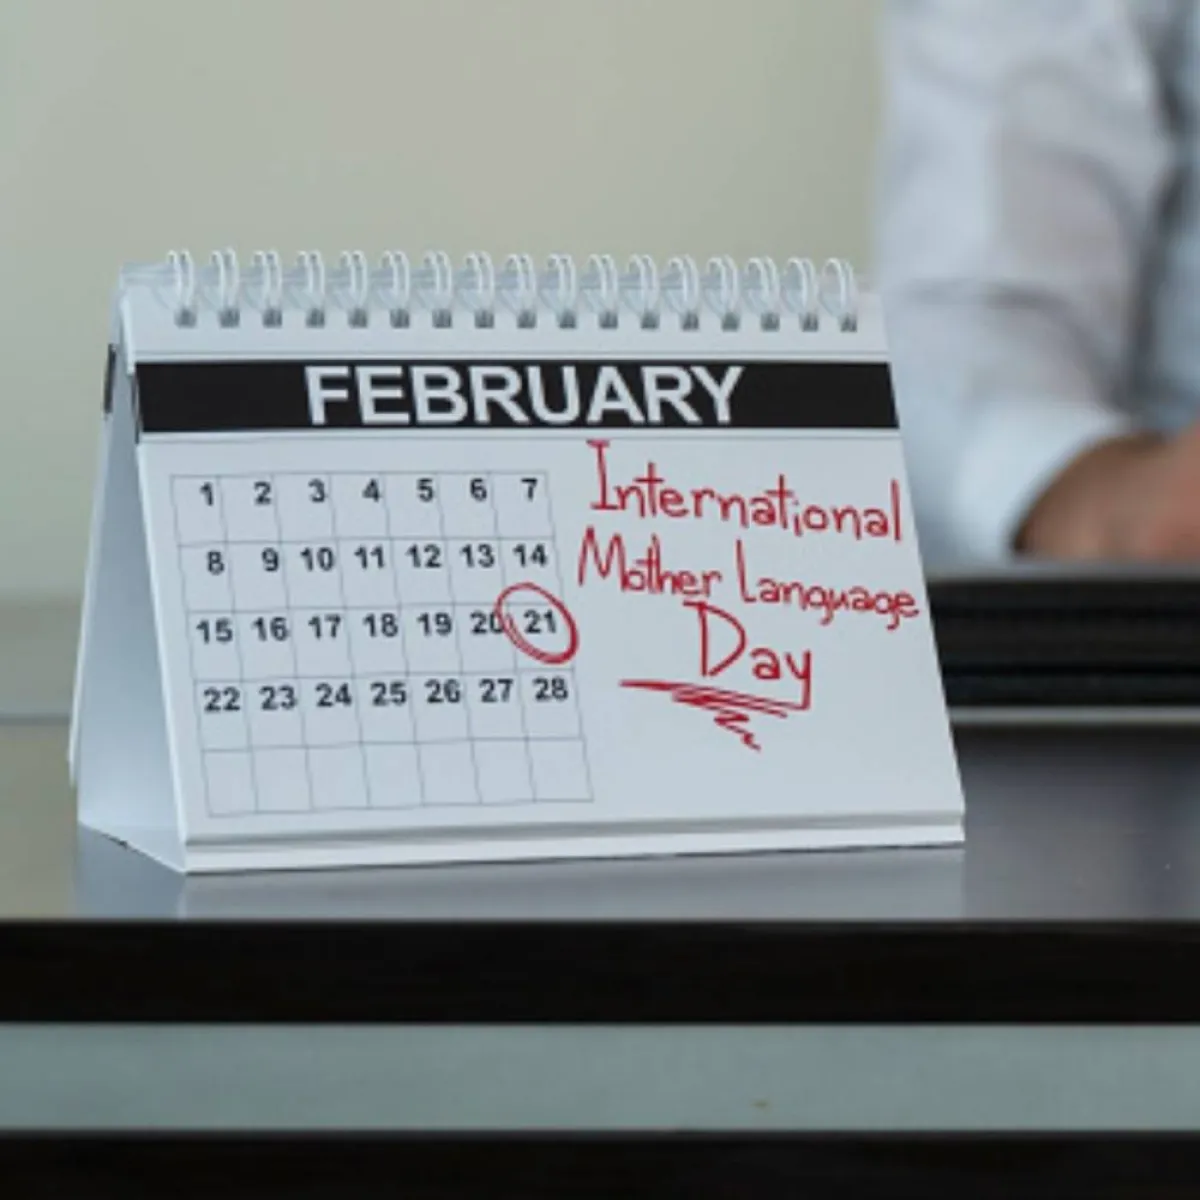 FEBRUARY
International
Mother Language
Day
1 2 3 4 5 6 7
8 9 10 11 12 13 14
15 16 17 18 19 20 21
22 23 24 25 26 27 28